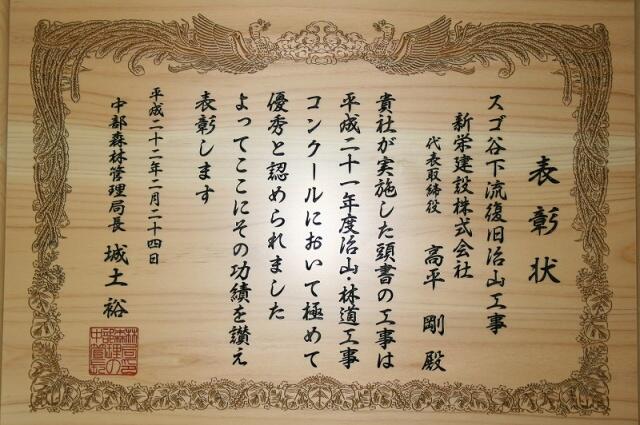 表彰状
スゴ谷下流復旧治山工事
新栄建設株式会社
代表取締役 高平 剛 殿
貴社が実施した頭書の工事は
平成二十一年度治山・林道工事
コンクールにおいて極めて
優秀と認められました
よってここにその功績を讃え
表彰します
平成二十二年二月二十四日
中部森林管理局長 城土 裕